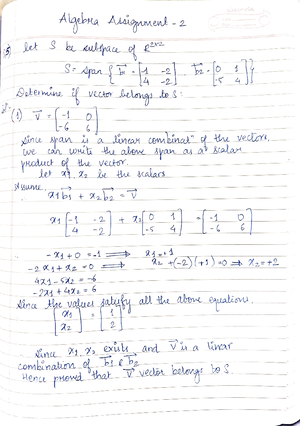 Algebra Assignment - 2
let S be subspace of R2x2
S = span { b1 = [-1 -2 b2 = [0 1
4 -2] -5 4] }
Determine if vector belongs to S:
(1) V = [-1 0
-6 6]
Since span is a linear combinatn of the vectors,
we can write the above span as at scalar
product of the vector.
let x1, x2 be the scalars
Assume,
x1 b1 + x2 b2 = V
x1 [-1 -2 + x2 [0 1 = [-1 0
4 -2] -5 4] -6 6]
-x1 + 0 = -1 ⟹ x1 = +1
-2x1 + x2 = 0 ⟹ x2 + (-2)(+1) = 0 ⟹ x2 = +2
4x1 - 5x2 = -6
-2x1 + 4x2 = 6
Since the values satisfy all the above equations,
[x1 = [1
x2] 2]
Since x1, x2 exists and V is a linear
combination of b1 & b2
Hence proved that V vector belongs to S.